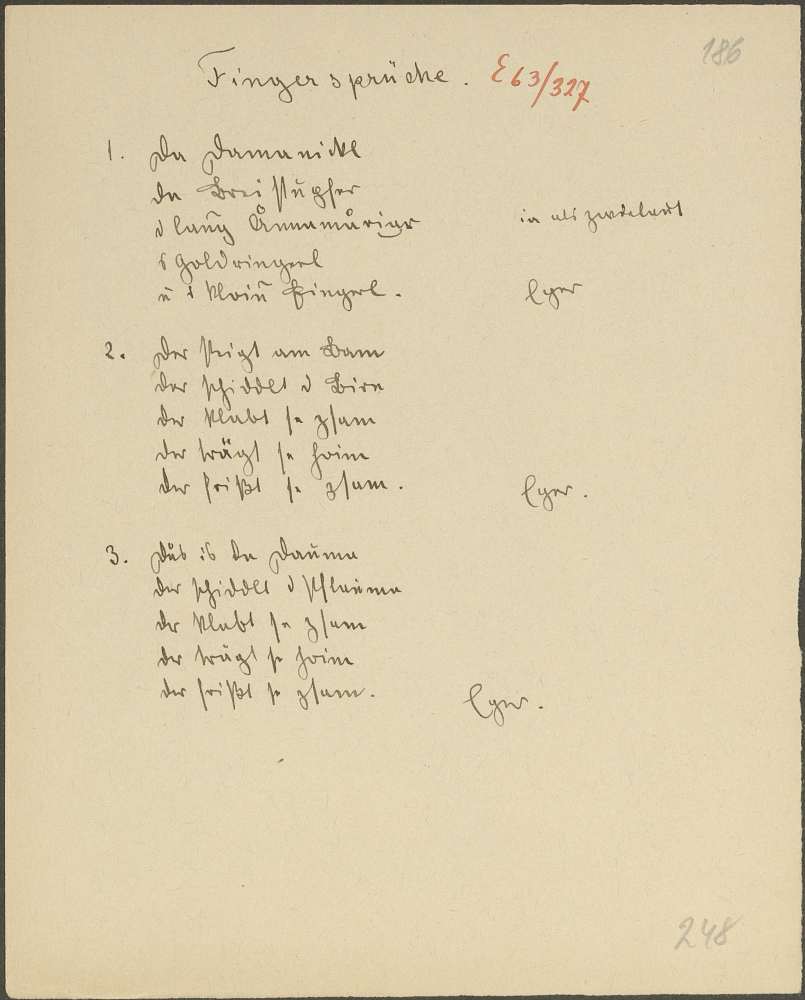 186
Fingersprüche. E63/327
1. Da Damanickl
da Breistupfer
d lang Ånnamåriar
s Goldringerl
u s kloin Fingerl.
ia als zwielaut
Eger
2. Der steigt am Bam
der schiddlt d Birn
der klabt se zsam
der trägt se hoim
der frißt se zsam.
Eger.
3. Dås is da Dauma
der schiddlt d Pflauma
der klabt se zsam
der trägt se hoim
der frißt se zsam.
Eger.
248